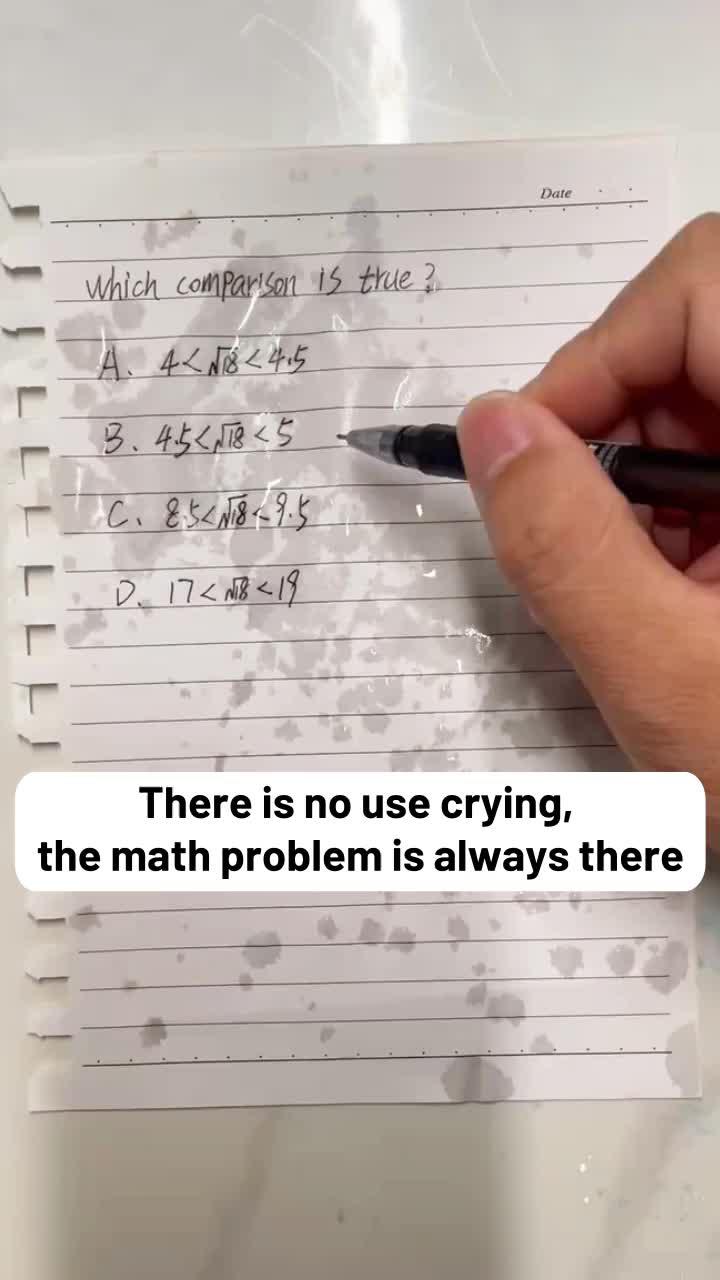 Date
Which comparison is true?
A. 4<√18<4.5
B. 4.5<√18<5
C. 8.5<√18<9.5
D. 17<√18<19
There is no use crying,
the math problem is always there